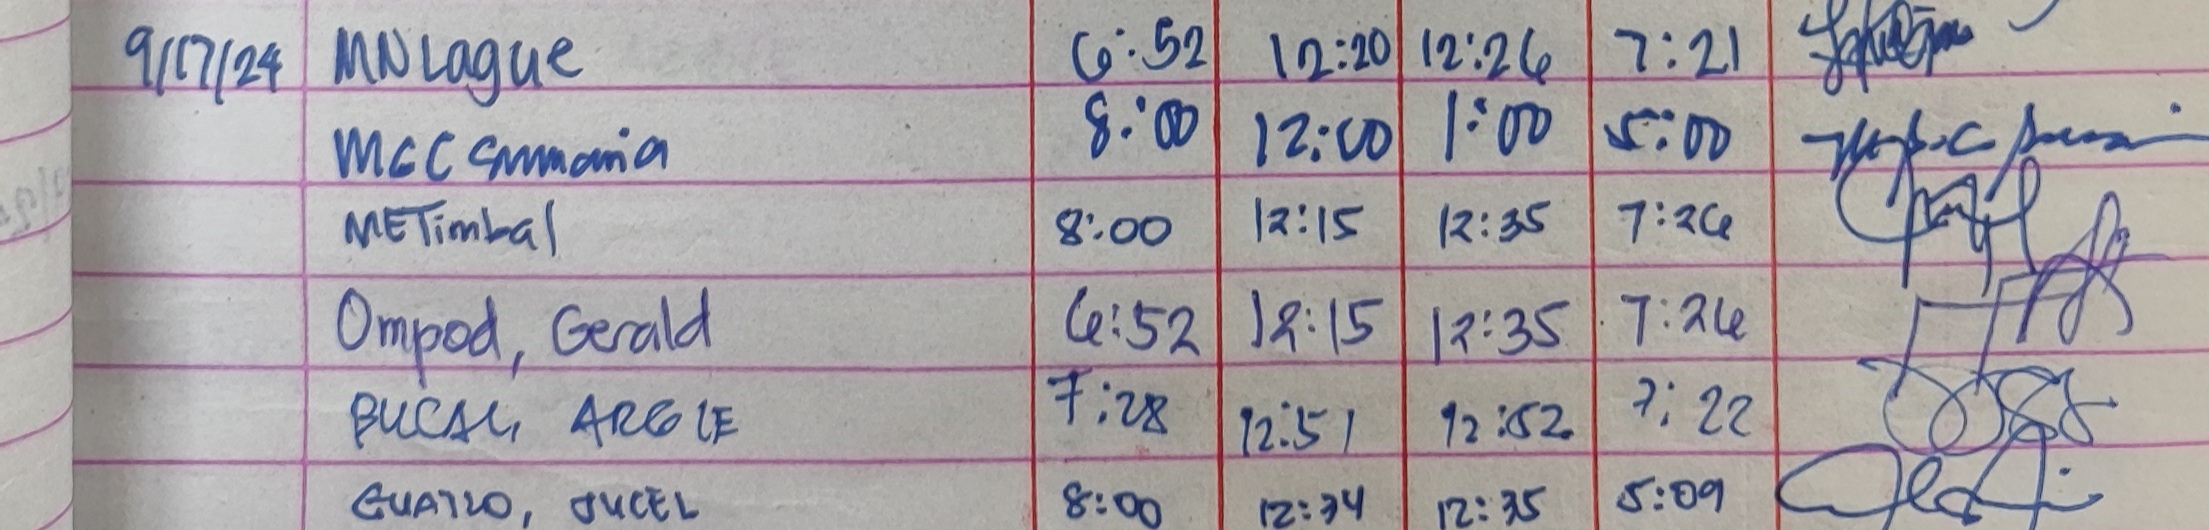 9/17/24 MNLague 6:52 12:20 12:26 7:21
MCC 8:00 12:00 1:00 5:00
METimbal 8:00 12:15 12:35 7:26
Ompod, Gerald 6:52 12:15 12:35 7:26
BUCAL, ARGIE 7:28 12:51 12:52 7:22
JUCEL 8:00 12:34 12:35 5:09